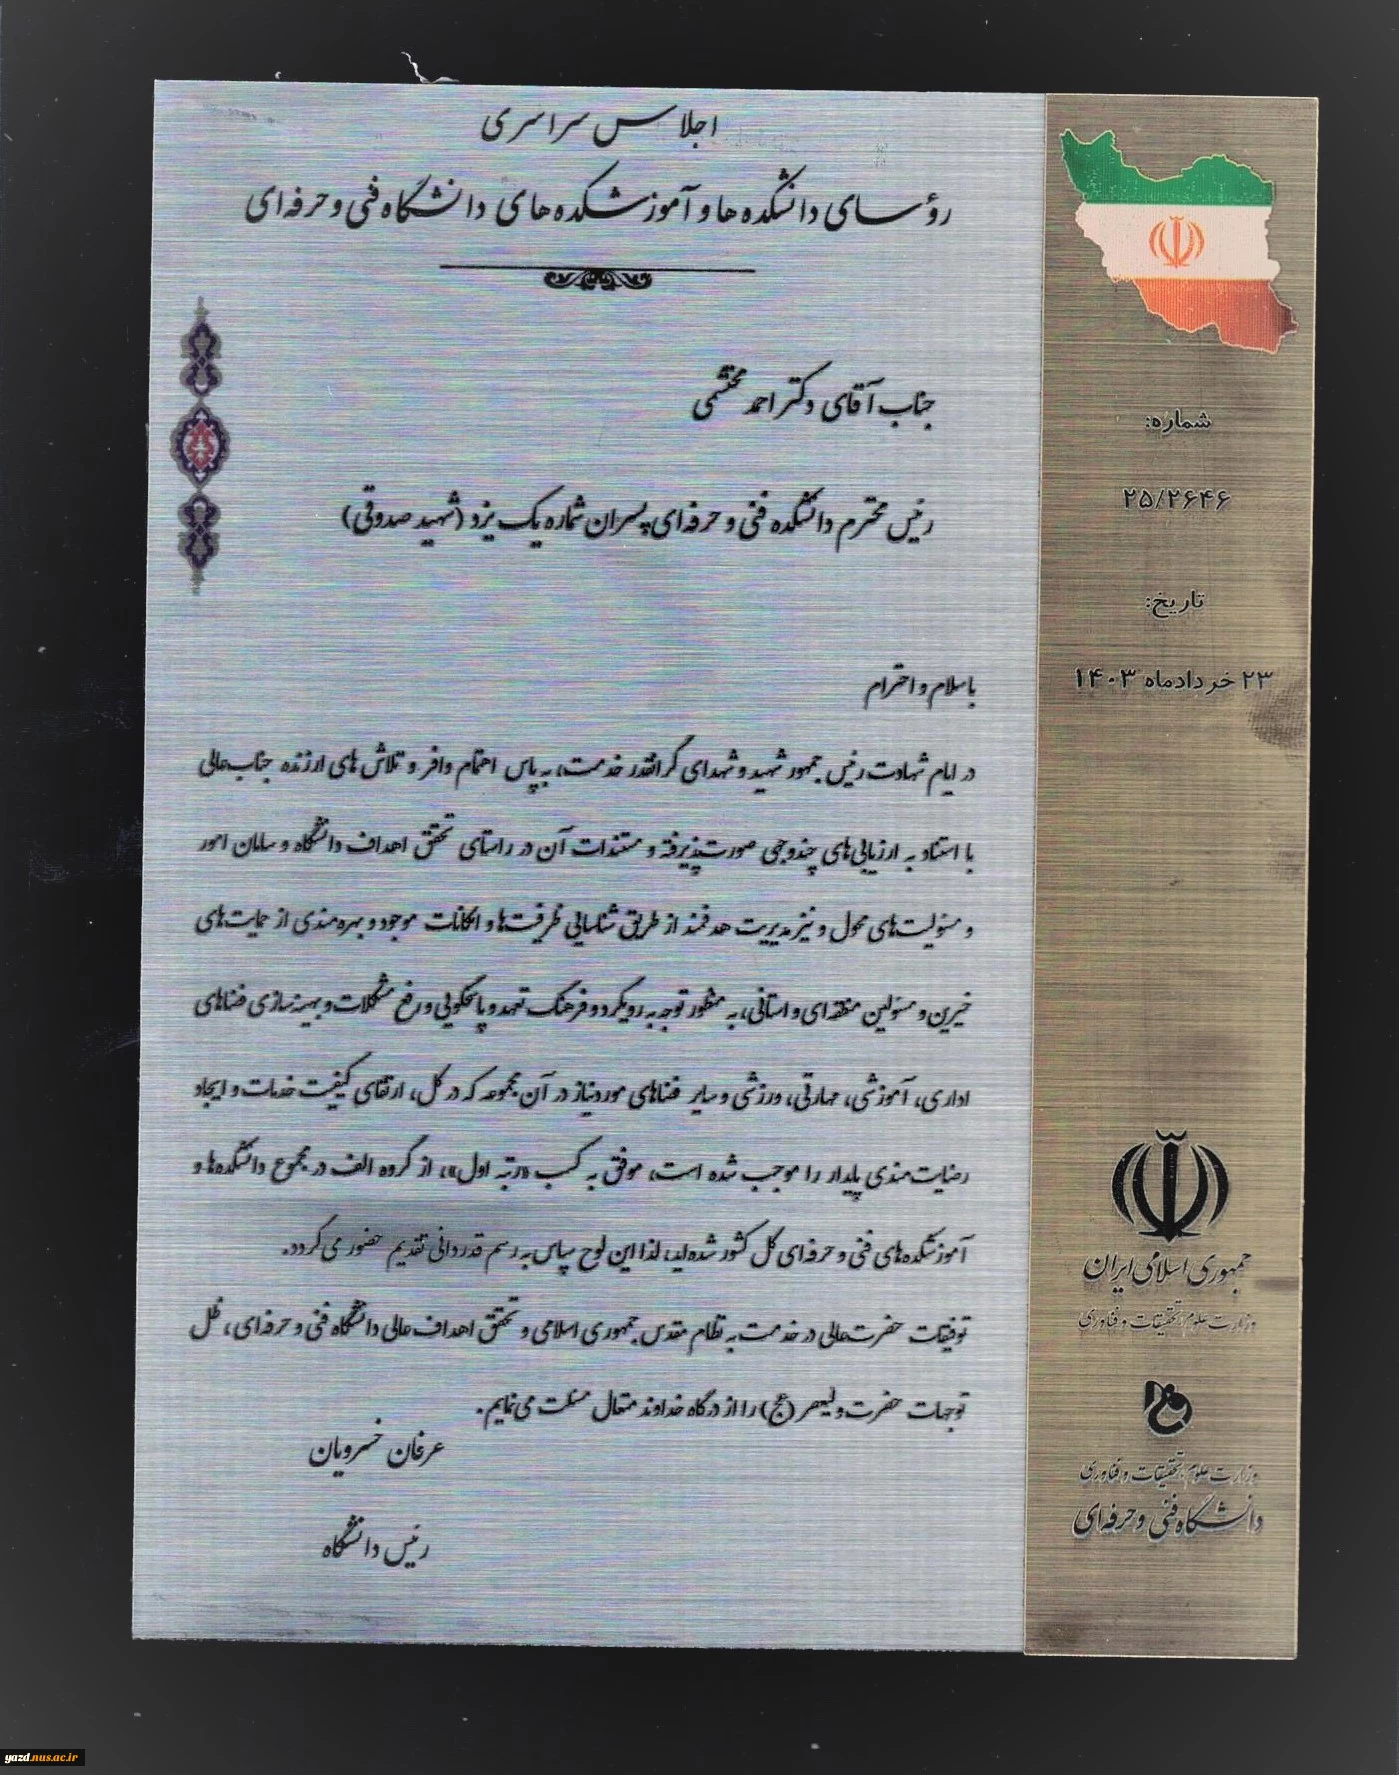 اجلاس سراسری
رؤسای دانشکده ها و آموزشکده های دانشگاه فنی و حرفه‌ای
جناب آقای دکتر احمد محتشمی
رئیس محترم دانشکده فنی و حرفه‌ای پسران شماره یک یزد (شهید صدوقی)
با سلام و احترام
در ایام شهادت رئیس جمهور شهید و شهدای گرانقدر خدمت، به پاس اهتمام وافر و تلاش های ارزنده جناب عالی
با استناد به ارزیابی‌های چندوجهی صورت‌پذیرفته و مستندات آن در راستای تحقق اهداف دانشگاه و سامان امور
و مسئولیت‌های محول و نیز مدیریت هدفمند از طریق شناسایی ظرفیت‌ها و امکانات موجود و بهره مندی از حمایت‌های
خیرین و مسئولین منطقه‌ای و استانی، به منظور توجه به رویکرد و فرهنگ تعهد و پاسخگویی و رفع مشکلات و بهینه سازی فضاهای
اداری، آموزشی، مهارتی، ورزشی و سایر فضاهای موردنیاز در آن مجموعه که در کل، ارتقای کیفیت خدمات و ایجاد
رضایت مندی پایدار را موجب شده است، موفق به کسب «رتبه اول»، از گروه الف در مجموع دانشکده‌ها و
آموزشکده‌های فنی و حرفه‌ای کل کشور شده‌اید، لذا این لوح سپاس به رسم قدردانی تقدیم حضور می گردد.
توفیقات حضرت‌عالی در خدمت به نظام مقدس جمهوری اسلامی و تحقق اهداف عالی دانشگاه فنی و حرفه‌ای، ظل
توجهات حضرت ولیعصر (عج) را از درگاه خداوند متعال مسئلت می نمایم.
عرفان خسرویان
رئیس دانشگاه
شماره:
۲۵/۲۶۴۶
تاریخ:
۲۳ خردادماه ۱۴۰۳
جمهوری اسلامی ایران
وزارت علوم، تحقیقات و فناوری
وزارت علوم، تحقیقات و فناوری
دانشگاه فنی و حرفه‌ای
yazd.nus.ac.ir